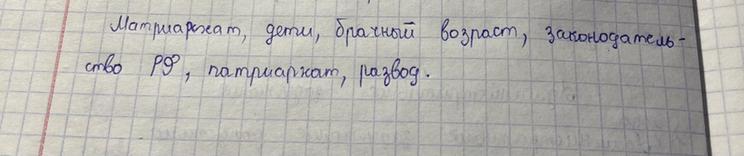 Матриархат, дети, брачный возраст, законодатель-
ство РФ, патриархат, развод.